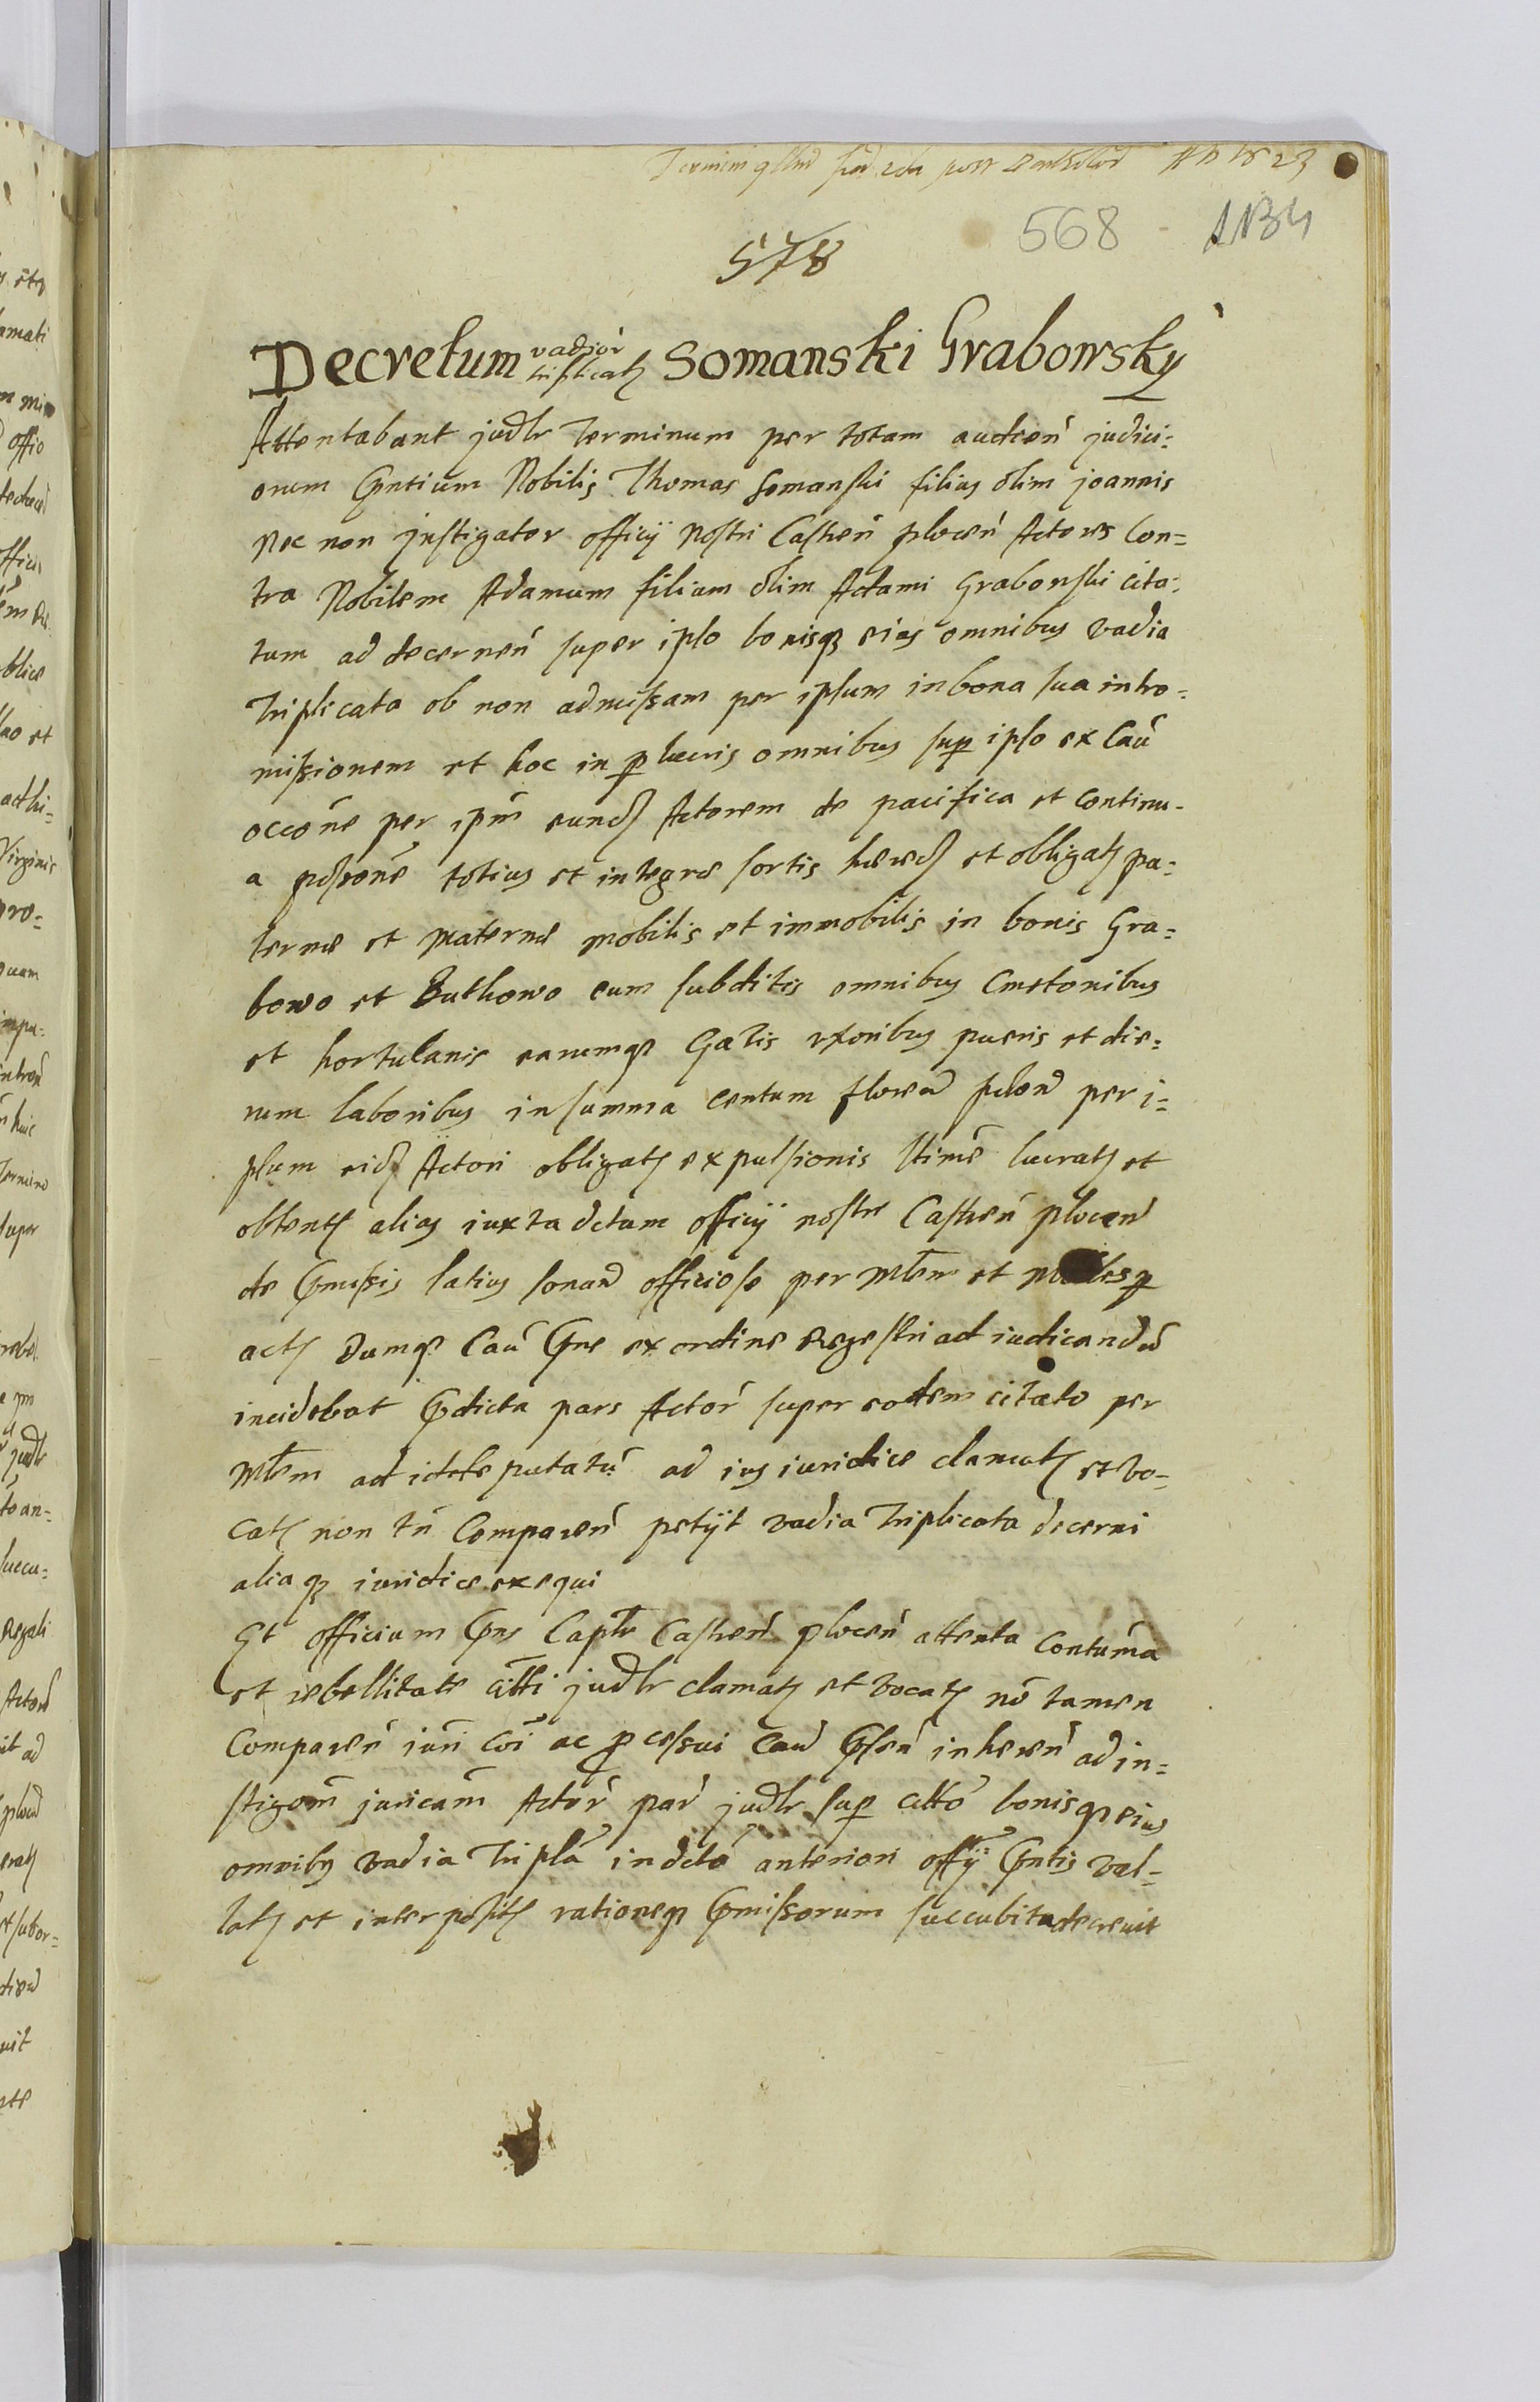 Termini
23
568 - 1134
578
Decretum vadior triplicat Somanski Grabowsky
Attentabant judlr terminum per totam audien judici=
orum pntium Nobilis Thomas Somanski filius olim joannis
Nec non jnstigator officij nostri Castren plocen Actores Con=
tra Nobilem Adamum filium olim Adami Grabonski cita=
tum ad decernen super ipso bonisq eius omnibus vadia
triplicata ob non admissam per ipsum in bona sua intro=
missionem et hoc in p lucris omnibus sup ipso ex Cau
occone per ipm eund Actorem de pacifica et continu-
a possone totius et integræ sortis hæred et obligat pa=
ternæ et maternæ mobilis et immobilis in bonis Gra=
bowo et Buthowo cum subditis omnibus Cmetonibus
et hortulanis earumq Gætis vxoribus pueris et die=
rum laboribus in summa centum floren polon per i=
psum eid Actori obligat expulsionis stime lucrat et
obtent alias iuxta dctum officij nostri Castren plocen
de pmissis latius sonan officiose per Mtem et
act Dumq Cau pns ex ordine Regestri ad iudicandu
incidebat pdicta pars Actor super eodem citato per
Mtem ad id deputatu ad ius iuridice clamat et vo=
cat non tn Comparen petijt vadia triplicata decerni
aliaq iuridice exequi
Et officium pns Captle Castren plocen attenta contuma
et rebellitate citti judlr clamat et vocat no tamen
Comparen iuri coi ac pcessui Cau psen inheren ad in=
stigom juricam Actor par judlr sup citto bonisq eius
omnibus vadia tripla in dcto anteriori offij pntis val=
lat et interposit rationeq pmissorum succubita decrevit